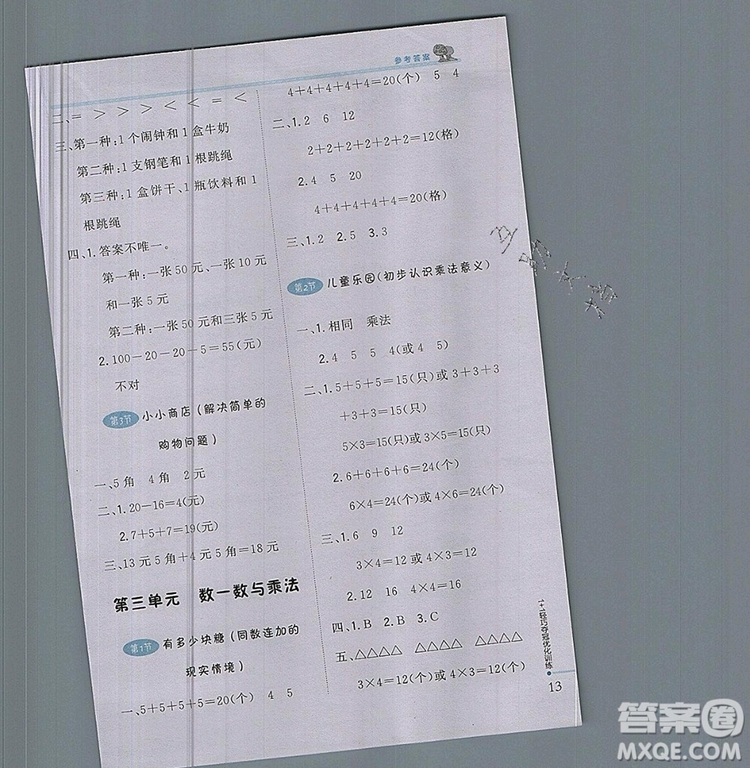 参考答案
二、= > > > < < = <
三、第一种:1个闹钟和1盒牛奶
第二种:1支钢笔和1根跳绳
第三种:1盒饼干、1瓶饮料和1
根跳绳
四、1.答案不唯一。
第一种:一张50元、一张10元
和一张5元
第二种:一张50元和三张5元
2.100-20-20-5=55(元)
不对
第3节 小小商店(解决简单的
购物问题)
一、5角 4角 2元
二、1.20-16=4(元)
2.7+5+7=19(元)
三、13元5角+4元5角=18元
第三单元 数一数与乘法
第1节 有多少块糖(同数连加的
现实情境)
一、5+5+5+5=20(个) 4 5
4+4+4+4+4=20(个) 5 4
二、1.2 6 12
2+2+2+2+2+2=12(格)
2.4 5 20
4+4+4+4+4=20(格)
三、1.2 2.5 3.3
第2节 儿童乐园(初步认识乘法意义)
一、1.相同 乘法
2.4 5 5 4(或4 5)
二、1.5+5+5=15(只)或3+3+3
+3+3=15(只)
5×3=15(只)或3×5=15(只)
2.6+6+6+6=24(个)
6×4=24(个)或4×6=24(个)
三、1.6 9 12
3×4=12或4×3=12
2.12 16 4×4=16
四、1.B 2.B 3.C
五、△△△△ △△△△ △△△△
3×4=12(个)或4×3=12(个)
1+1轻巧夺冠优化训练
13
答案圈
MXQE.COM